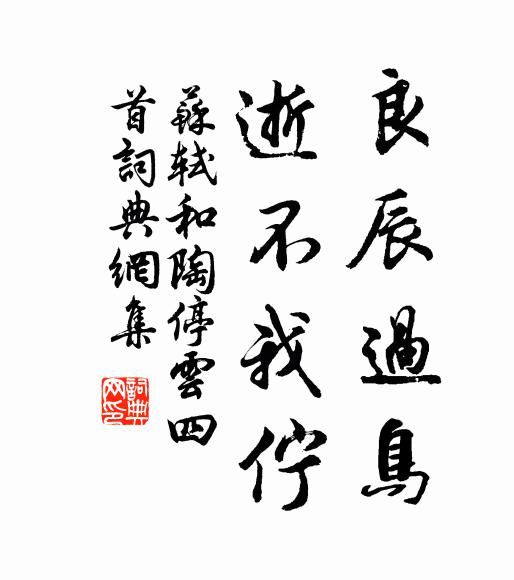 良辰過鳥
逝不我佇
蘇軾和陶停雲四
首詞典網集
詞典網印